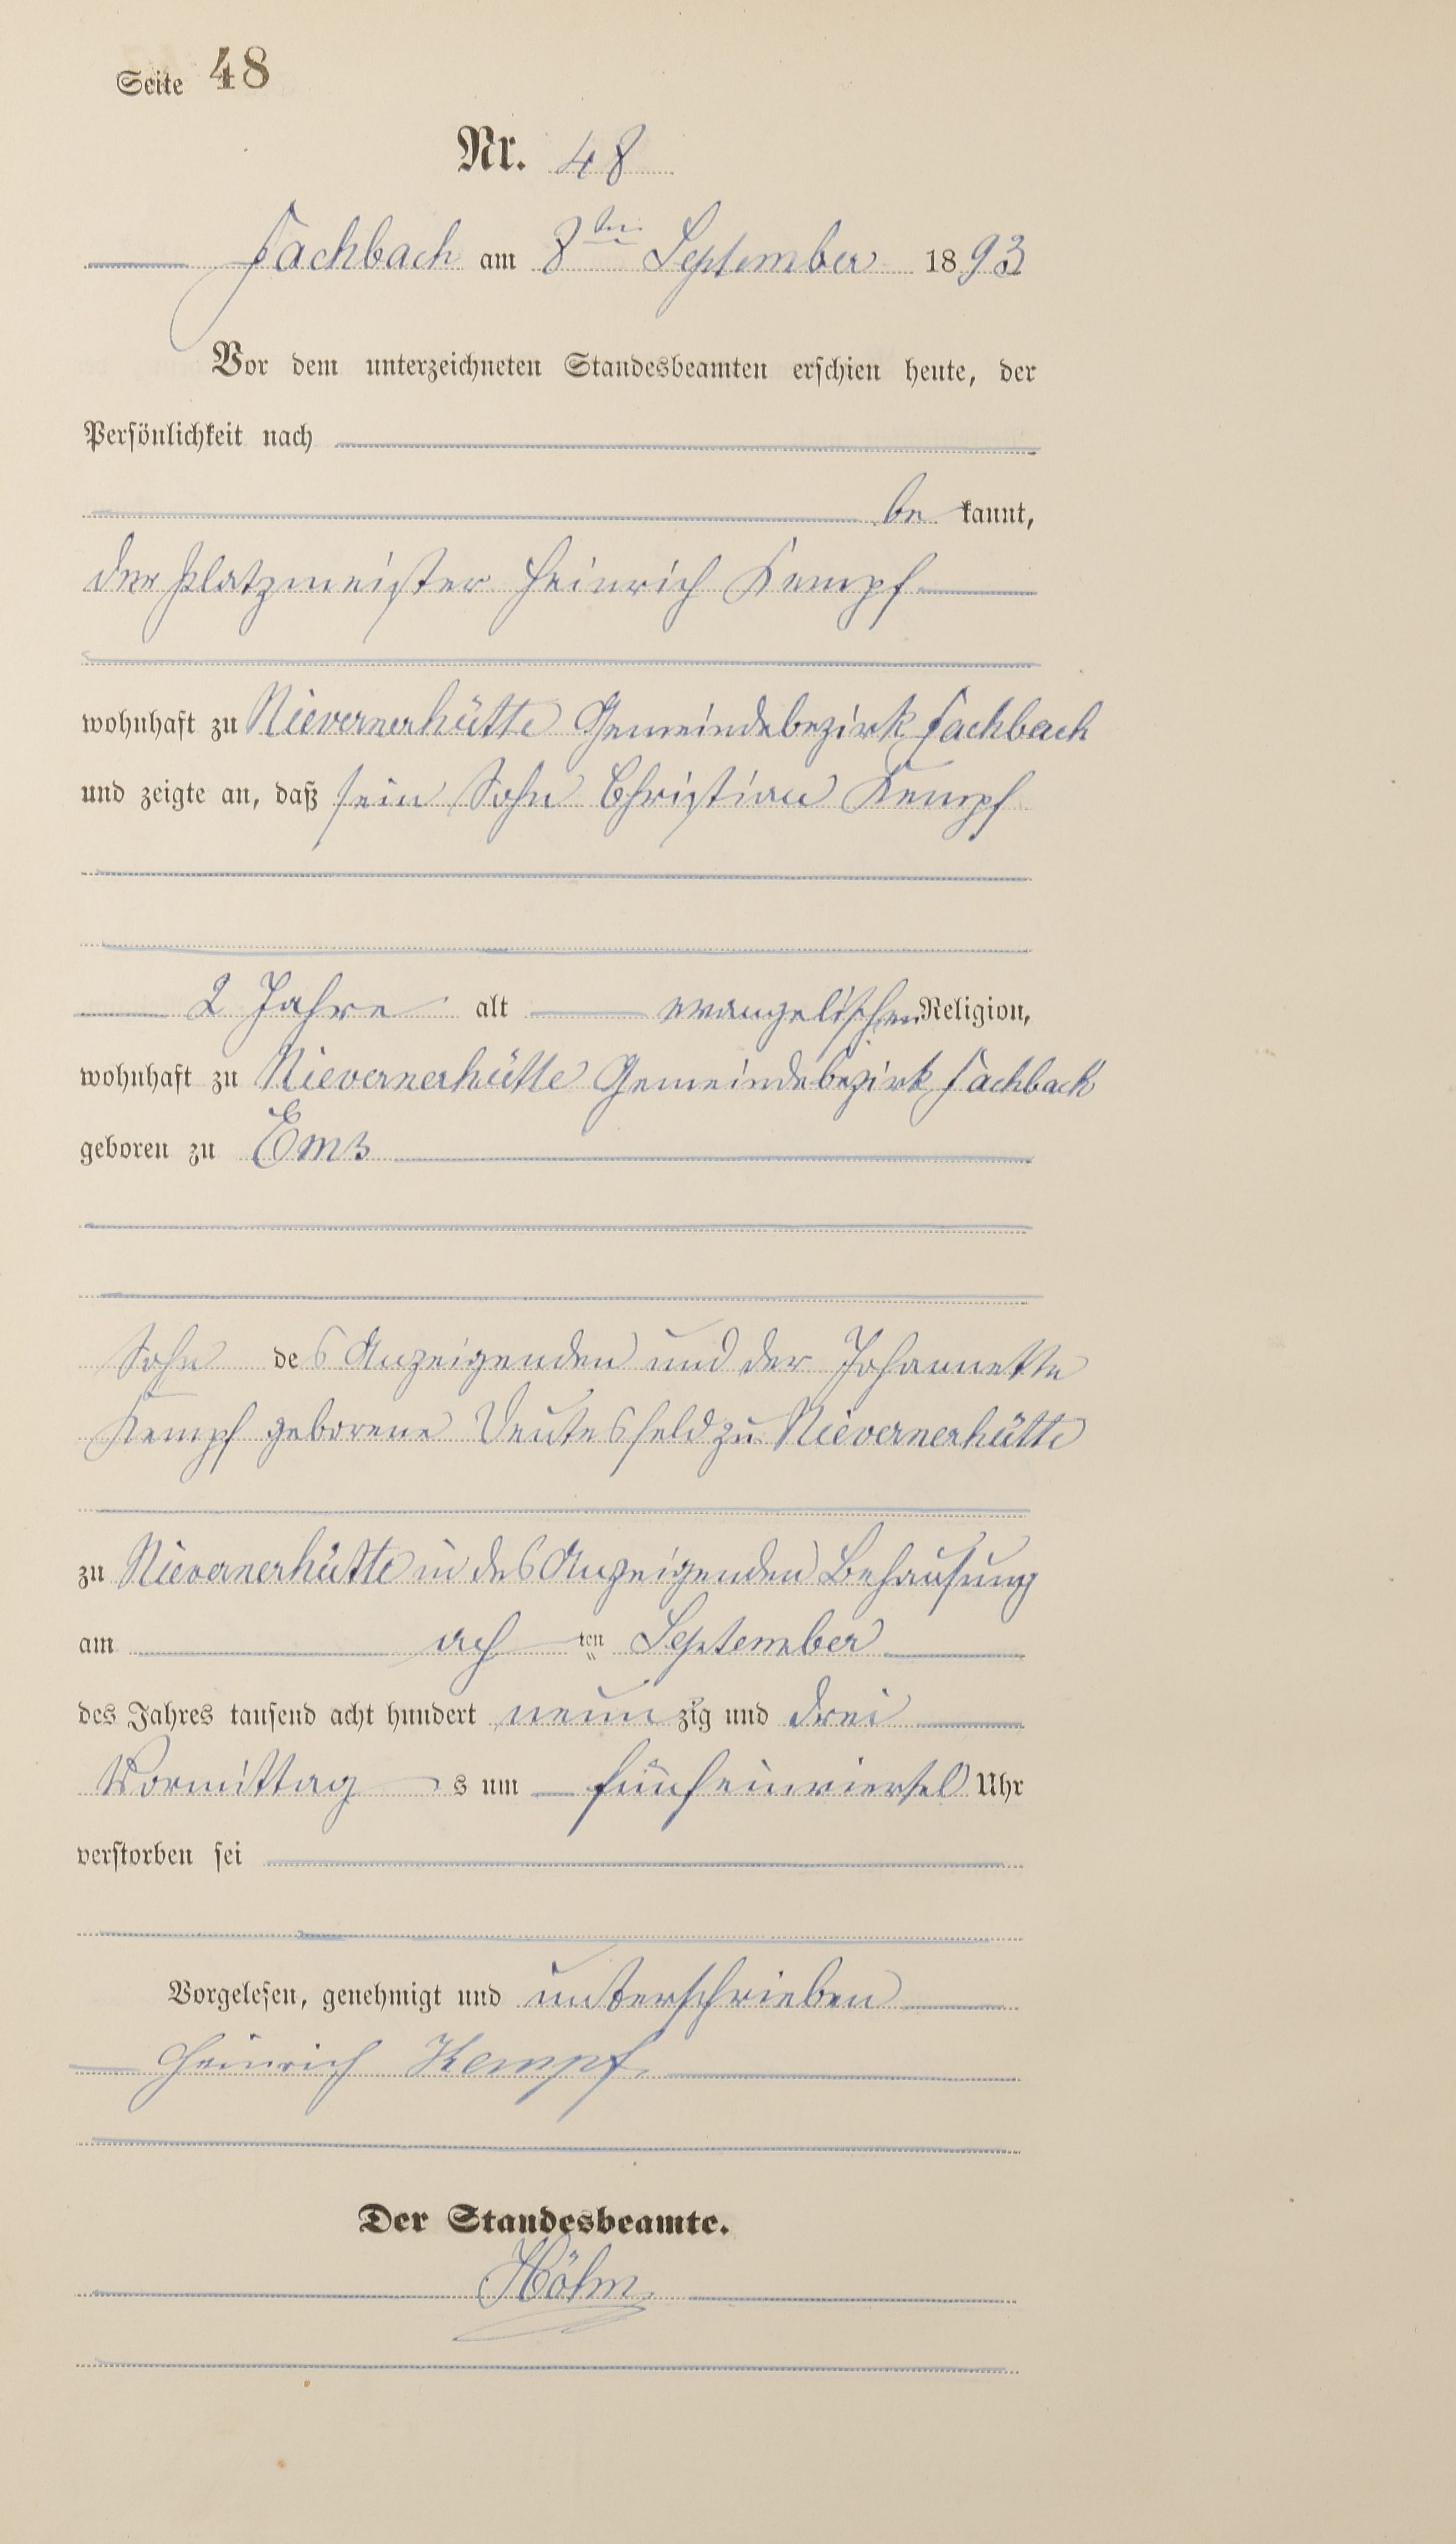 Seite 48
Nr. 48
Fachbach am 8ten September 1893
Vor dem unterzeichneten Standesbeamten erschien heute, der
Persönlichkeit nach
be kannt,
der Platzmeister Heinrich Kempf
wohnhaft zu Nievernerhütte Gemeindebezirk Fachbach
und zeigte an, daß sein Sohn Christian Kempf
2 Jahre alt evangelischen Religion,
wohnhaft zu Nievernerhütte Gemeindebezirk Fachbach
geboren zu Ems
Sohn des Anzeigenden und der Johannette
Kempf geborene zu Nievernerhütte
zu Nievernerhütte in des Anzeigenden Behausung
am ach ten September
des Jahres tausend acht hundert neun zig und drei
Vormittag s um fünfeinviertel Uhr
verstorben sei
Vorgelesen, genehmigt und unterschrieben
Heinrich Kempf.
Der Standesbeamte.